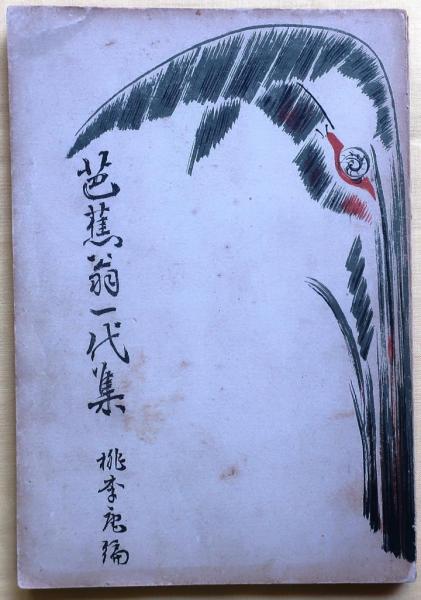 芭蕉翁一代集
桃李庵編